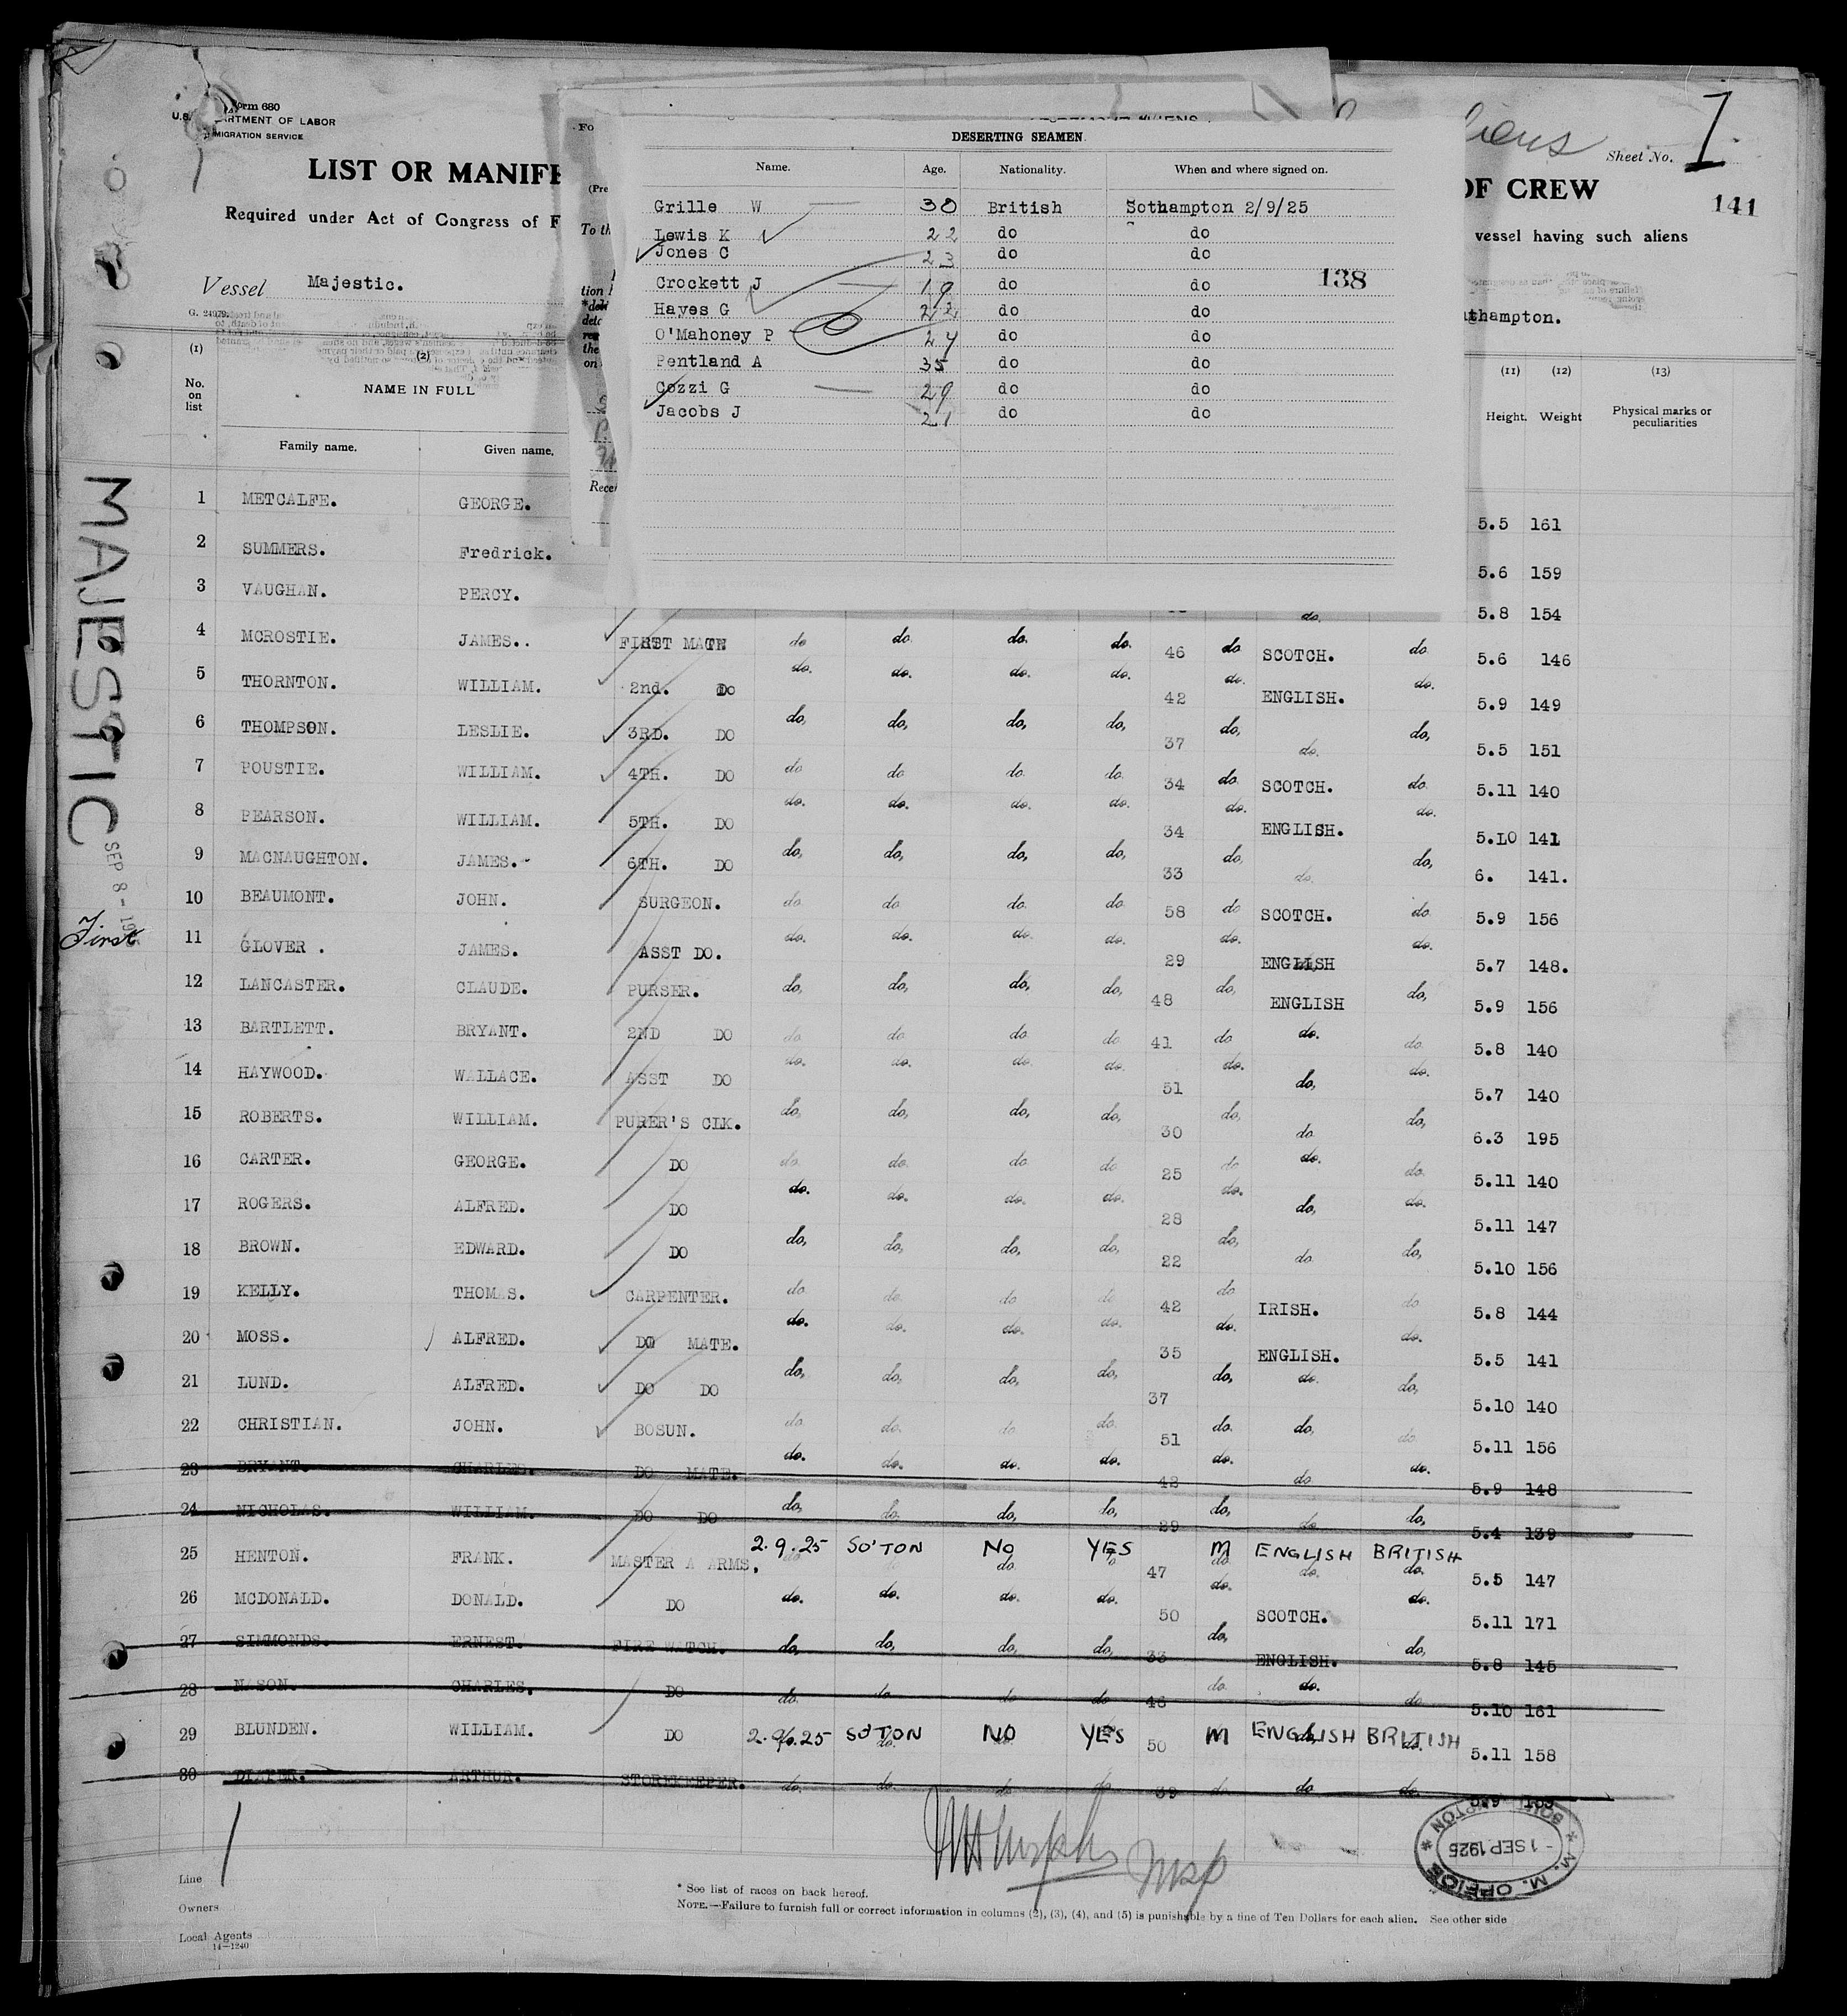 Form 680
U.S. DEPARTMENT OF LABOR
IMMIGRATION SERVICE
LIST OR MANIFE
OF CREW
Required under Act of Congress of F
vessel having such aliens
liens
Sheet No. 1
141
Vessel Majestic.
thampton.
G. 24979.
DESERTING SEAMEN.
Name. Age. Nationality. When and where signed on.
Grille W 38 British Sothampton 2/9/25
Lewis K 22 do do
Jones C 23 do do
Crockett J 19 do do 138
Hayes G 22 do do
O'Mahoney P 24 do do
Pentland A 35 do do
Cozzi G 29 do do
Jacobs J 21 do do
Fo
(Pre
To th
tion
the
on
Recei
(1) (2) (11) (12) (13)
No. on list NAME IN FULL Height. Weight Physical marks or peculiarities
Family name. Given name.
1 METCALFE. GEORGE. 5.5 161
2 SUMMERS. Fredrick. 5.6 159
3 VAUGHAN. PERCY. do. 5.8 154
4 MCROSTIE. JAMES.. FIRST MATE do do. do. do. 46 do SCOTCH. do 5.6 146
5 THORNTON. WILLIAM. 2nd. DO do. do. do. do. 42 do. ENGLISH. do. 5.9 149
6 THOMPSON. LESLIE. 3RD. DO do. do, do, do, 37 do, do. do, 5.5 151
7 POUSTIE. WILLIAM. 4TH. DO do do do. do. 34 do. SCOTCH. do. 5.11 140
8 PEARSON. WILLIAM. 5TH. DO do. do. do. do. 34 do. ENGLISH. do. 5.10 141
9 MACNAUGHTON. JAMES. 6TH. DO do, do, do, do, 33 do, do. do, 6. 141.
10 BEAUMONT. JOHN. SURGEON. do do do. do 58 do SCOTCH. do 5.9 156
11 GLOVER . JAMES. ASST DO. do. do. do. do. 29 do. ENGLISH do. 5.7 148.
12 LANCASTER. CLAUDE. PURSER. do, do, do, do, 48 do, ENGLISH do, 5.9 156
13 BARTLETT. BRYANT. 2ND DO do do do do 41 do do. do 5.8 140
14 HAYWOOD. WALLACE. ASST DO do. do. do. do. 51 do. do, do. 5.7 140
15 ROBERTS. WILLIAM. PURER'S CLK. do, do, do, do, 30 do, do do, 6.3 195
16 CARTER. GEORGE. DO do. do. do do 25 do do. do 5.11 140
17 ROGERS. ALFRED. DO do. do. do. do. 28 do. do, do. 5.11 147
18 BROWN. EDWARD. DO do, do, do, do, 22 do, do do, 5.10 156
19 KELLY. THOMAS. CARPENTER. do do. do do 42 do IRISH. do 5.8 144
20 MOSS. ALFRED. DO MATE. do. do. do. do. 35 do. ENGLISH. do. 5.5 141
21 LUND. ALFRED. DO DO do, do, do, do, 37 do, do. do, 5.10 140
22 CHRISTIAN. JOHN. BOSUN. do. do. do do. 51 do. do, do. 5.11 156
23 BRYANT. CHARLES. DO MATE. do. do. do. do. 42 do. do do. 5.9 148
24 NICHOLAS. WILLIAM. DO DO do, do. do, do, 29 do, do do, 5.4 139
25 HENTON. FRANK. MASTER A ARMS. 2.9.25 SO'TON NO YES 47 M ENGLISH BRITISH 5.5 147
26 MCDONALD. DONALD. DO do. do. do. do. 50 do. SCOTCH. do. 5.11 171
27 SIMMONDS. ERNEST. FIRE WATCH. do, do, do, do, 33 do, ENGLISH. do, 5.8 145
28 MASON. CHARLES. DO do. do do do 46 do. do. do 5.10 161
29 BLUNDEN. WILLIAM. DO 2.9.25 SO'TON NO YES 50 M ENGLISH BRITISH 5.11 158
30 DIAPER. ARTHUR. STOREKEEPER. do. do. do do 39 do do do.
MAJESTIC
SEP 8 - 19
First
M. M. OFFICE
SOUTHAMPTON
- 1 SEP 1925
Line
Owners
Local Agents
14—1240
* See list of races on back hereof.
NOTE.—Failure to furnish full or correct information in columns (2), (3), (4), and (5) is punishable by a fine of Ten Dollars for each alien. See other side